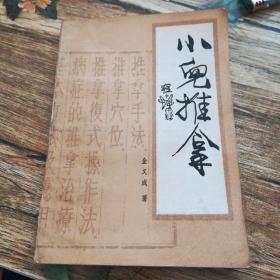 小兒推拿
金义成 著
推拿手法
推拿穴位
推拿復式操作法
病症推拿治療